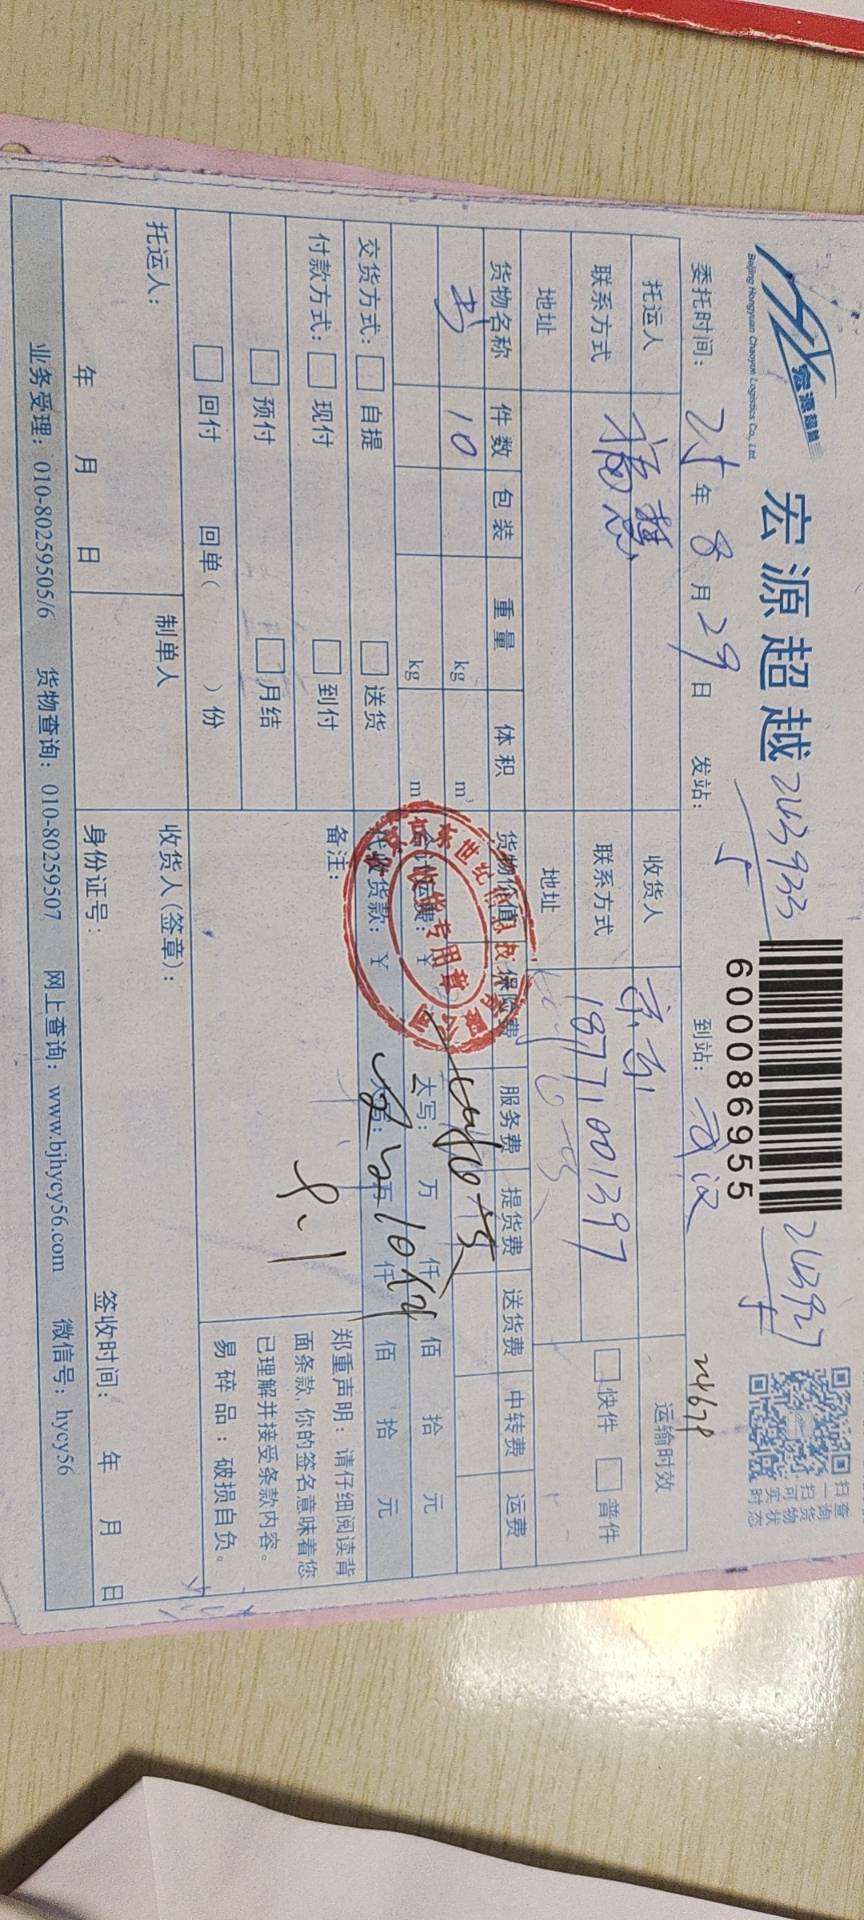 宏源超越
Beijing Hongyuan Chaoyue Logistics Co., Ltd
宏源超越
243933
243927
6000086955
扫一扫
查询货物
可实时状态
24678
委托时间: 25 年 8 月 29 日 发站: 到站: 武汉
托运人 收货人 京东 运输时效
联系方式 福慧 联系方式 18771001397 快件 普件
地址 地址
货物名称 件数 包装 重量 体积 货物价值 保险费 服务费 提货费 送货费 中转费 运费
书 10 kg m³
kg m³ 合计运费: ¥ 大写: 万 仟 佰 拾 元
交货方式: 自提 送货 代收货款: ¥ 大写: 万 仟 佰 拾 元
收货专用章
付款方式: 现付 到付 备注:
预付 月结
回付 回单( )份
9.1
郑重声明:请仔细阅读背
面条款,你的签名意味着您
已理解并接受条款内容。
易碎品:破损自负。
托运人: 制单人 收货人(签章):
年 月 日 身份证号: 签收时间: 年 月 日
业务受理: 010-80259505/6 货物查询: 010-80259507 网上查询: www.bjhycy56.com 微信号: hycy56